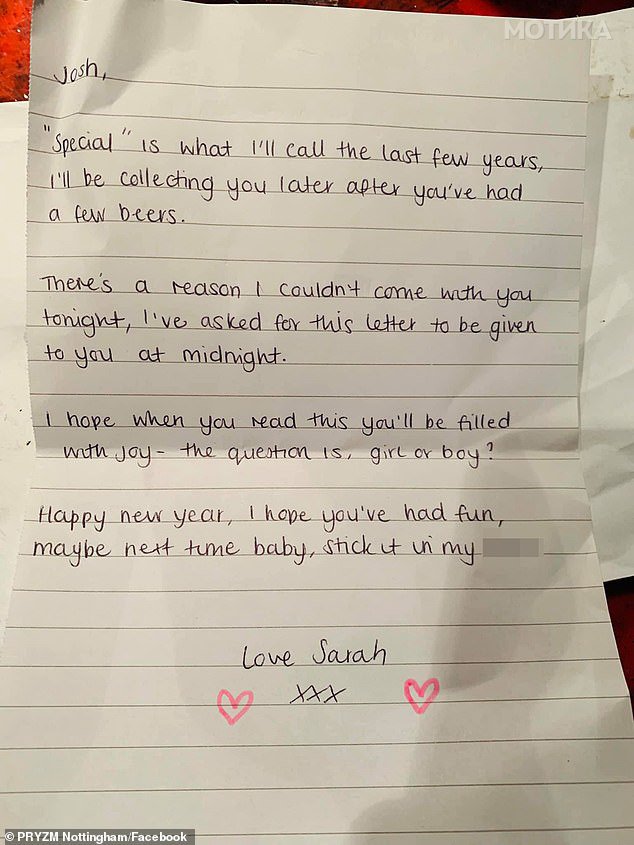 МОТИКА
Josh,
"Special" is what I'll call the last few years,
I'll be collecting you later after you've had
a few beers.
There's a reason I couldn't come with you
tonight, I've asked for this letter to be given
to you at midnight.
I hope when you read this you'll be filled
with joy - the question is, girl or boy?
Happy new year, I hope you've had fun,
maybe next time baby, stick it in my
Love Sarah
xxx
© PRYZM Nottingham/Facebook